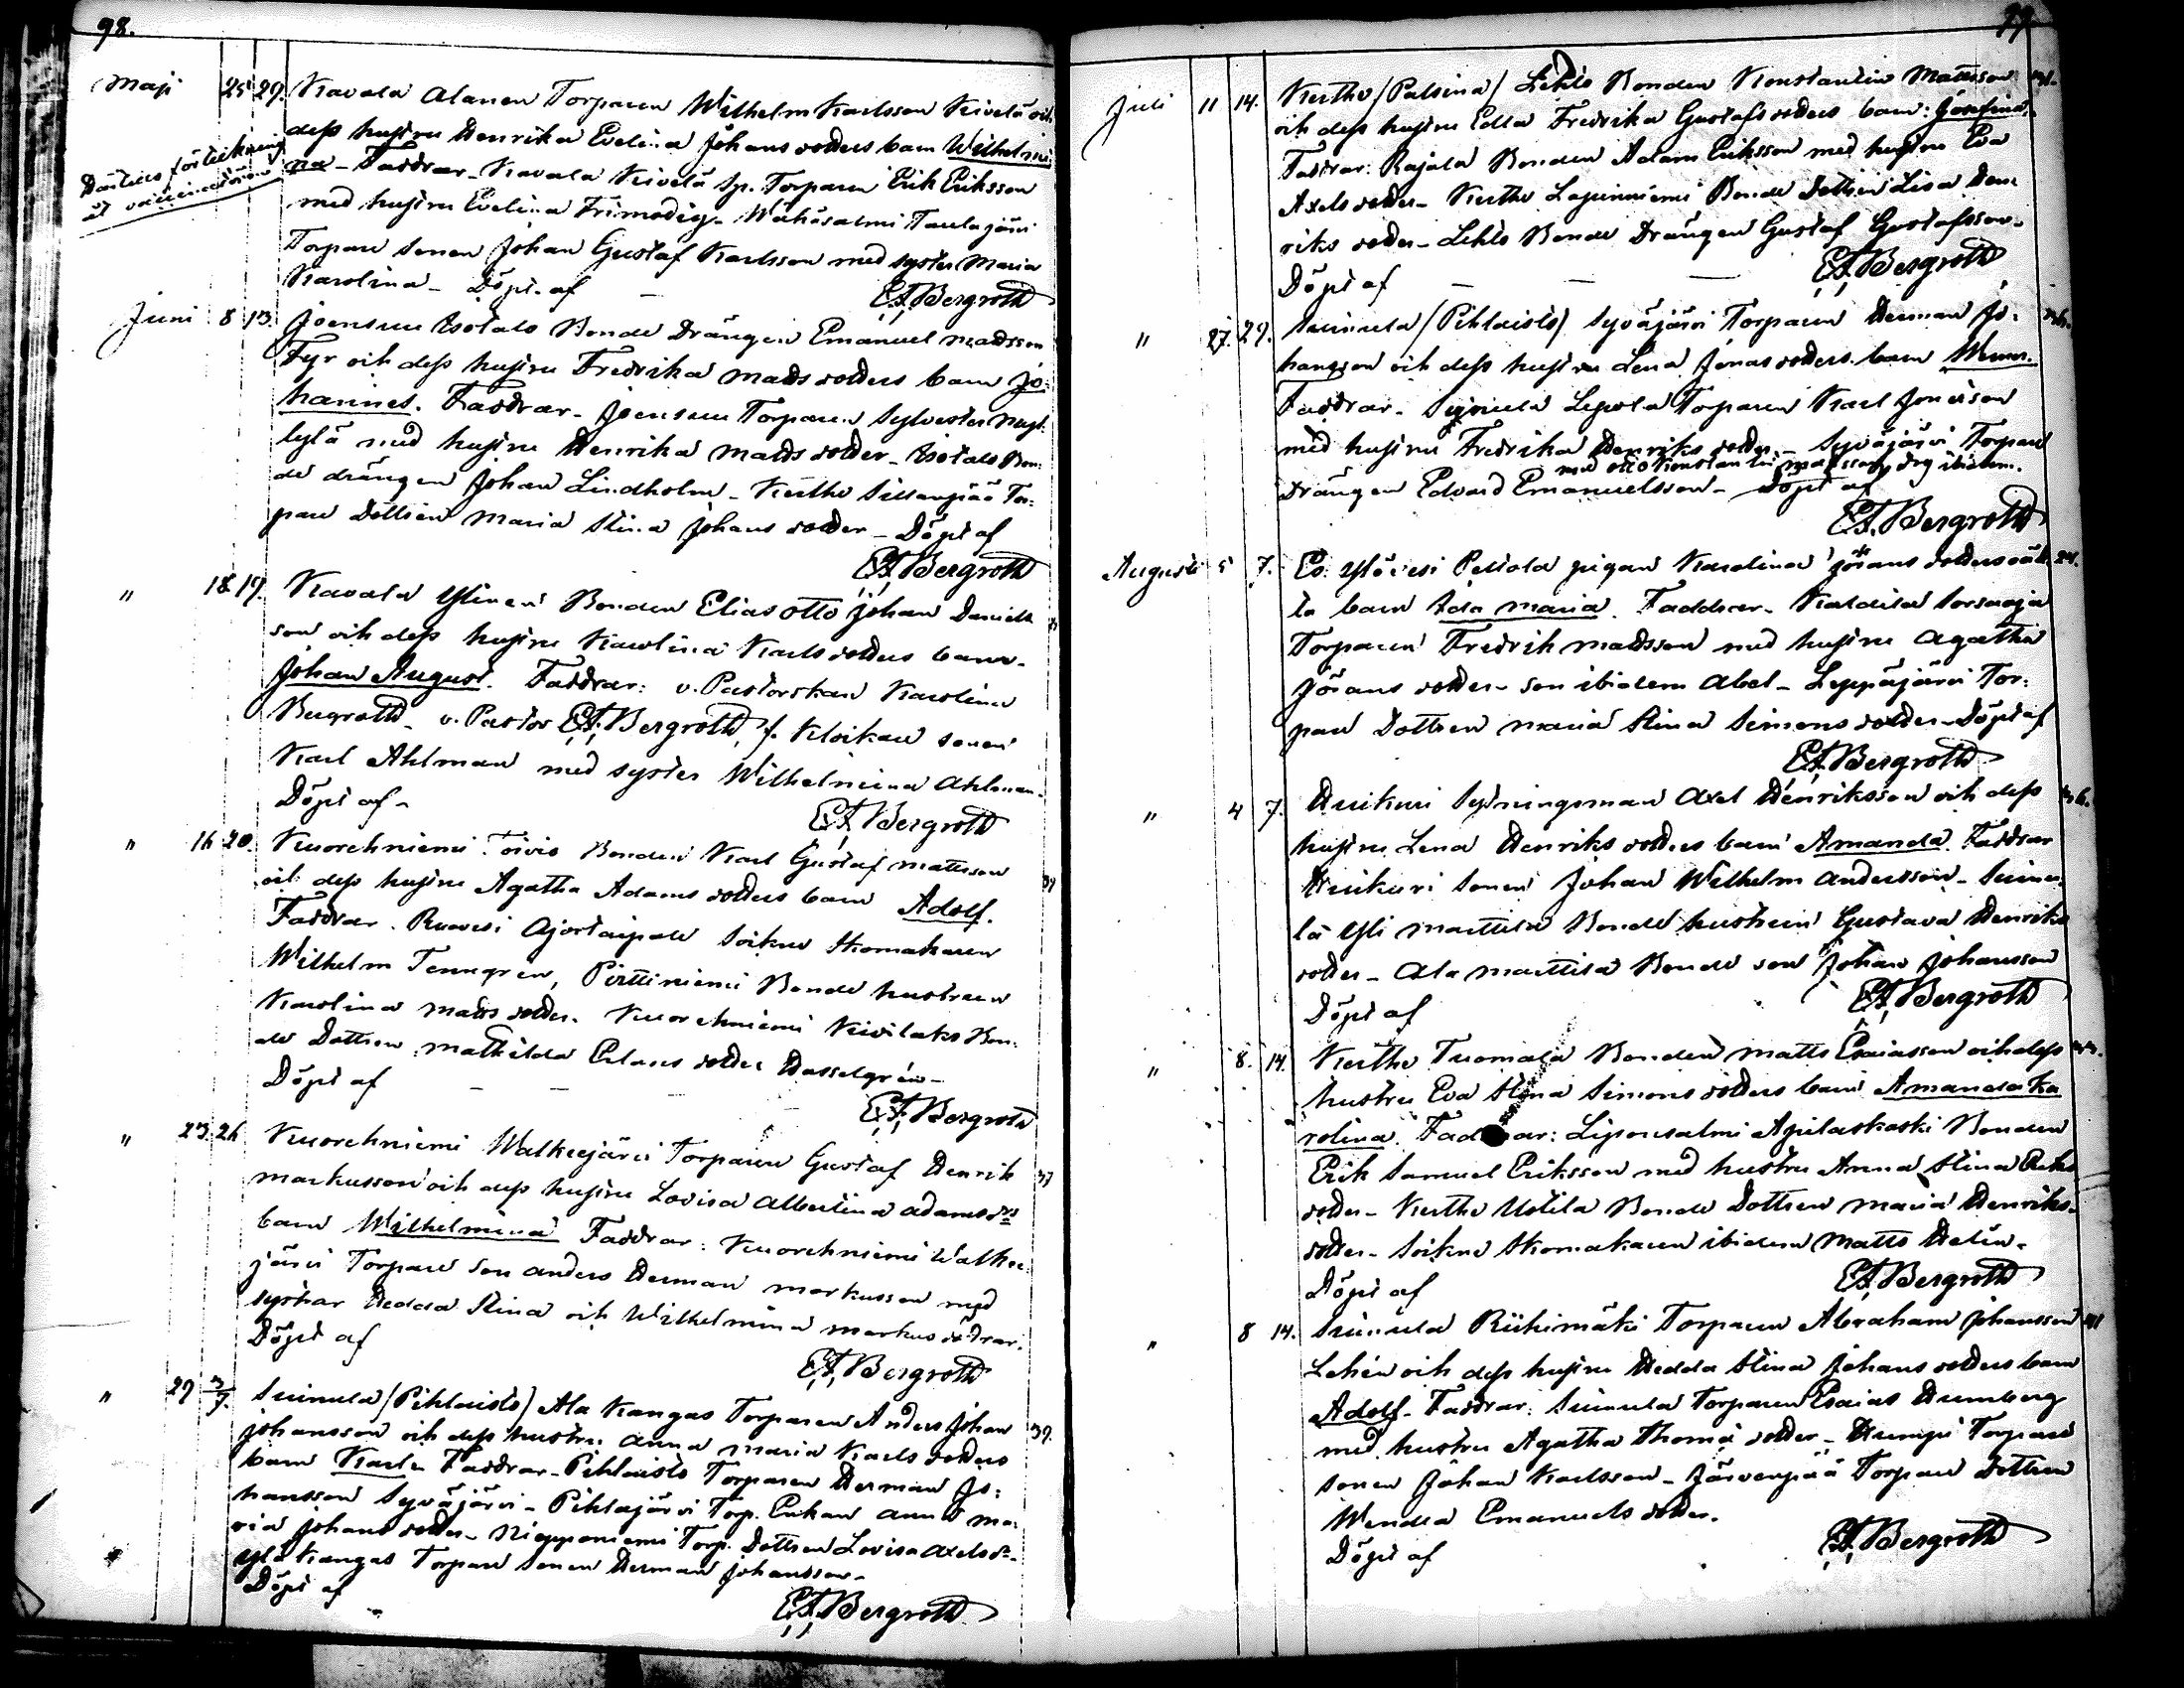 98.
Maji 25 29. Kavala Alanen Torparen Wilhelm Karlsson Kivelä och
dess hustru Henrika Evelina Johans dotters barn Wilhelmi
na - Faddrar - Kavala Kivelä Sp. Torparen Erik Eriksson
förteckning
med hustru Evelina Frimodig - Wähäsalmi Taulajärvi
Torpare sonen Johan Gustaf Karlsson med syster Maria
Karolina - Döpt af
E.F. Bergroth
Juni 8 13. Joensuu Isotalo Bonde Drängen Emanuel Madsson
Fyr och dess hustru Fredrika Mads dotters barn Jo:
hannes. Faddrar - Joensuu Torparen Sylvester
lylä med hustru Henrika Mads dotter - Isotalo Bon:
de drängen Johan Lindholm - Kerttu Sillanpää Tor:
pare Dottren Maria Stina Johans dotter - Döpt af
E.F. Bergroth
" 18 19. Kavala Ylinen Bonden Elias Otto Johan Daniels
son och dess hustru Karolina Karls dotters barn -
Johan August. Faddrar: v. Pastorskan Karolina
Bergroth - v. Pastor E.F. Bergroth, f. Klockare sonen
Karl Ahlman med syster Wilhelmina Ahlman -
Döpt af -
E.F. Bergroth
" 16 20. Kuorehniemi Toivio Bonden Karl Gustaf Mattsson
och dess hustru Agatha Adams dotters barn Adolf.
Faddrar. Ruovesi Ajostaipale Sockne Skomakaren
Wilhelm Tenngren, Pirttiniemi Bonde hustrun
Karolina Mads dotter. Kuorehniemi Kivilaks Bon:
de Dottren Mathilda Erlans dotter Hasselgrén -
Döpt af
E.F. Bergroth
" 23. 26 Kuorehniemi Walkejärvi Torparen Gustaf Henrik
Markusson och dess hustru Lovisa Albertina Adams drs
barn Wilhelmina Faddrar: Kuorehniemi Walke:
järvi Torpare Son Anders Herman Markusson med
systrar Hedda Stina och Wilhelmina Markus döttrar.
Döpt af
E.F. Bergroth
" 29 3/7. Suinula (Pihlaisto) Ala Kangas Torparen Anders Johan 39.
Johansson och dess hustru Anna Maria Karls dotters
barn Karl. Faddrar - Pihlaisto Torparen Herman Jo:
hansson Syväjärvi - Pihlajärvi Torp. Enkan Anna Ma:
ria Johans dotter - Nieppomiemi Torp. Dottren Lovisa Axels dr.
Ylä Kangas Torpare Sonen Herman Johansson -
Döpt af
E.F. Bergroth
99
Juli 11 14. Kerttu (Palsina) Lehto Bonden Konstantin Mattsson
och dess hustru Edla Fredrika Gustafs dotters barn: Josefina.
Faddrar: Rajala Bonden Adam Eriksson med hustru Eva
Axels dotter - Kerttu Lapinniemi Bonde Dottren Lisa Hen:
riks dotter - Lehto Bonde Drängen Gustaf Gustafsson -
Döpt af
E.F. Bergroth
" 27. 29. Suinula (Pihlaisto) Syväjärvi Torparen Herman Jo:
hansson och dess hustru Lena Jonas dotters barn Werner.
Faddrar - Lepola Torparen Karl Jonasson
med hustru Fredrika Henriks dotter - Syväjärvi Torpare
med Otto Konstantin ibidem.
Drängen Edvard Emanuelsson - Döpt af
E.F. Bergroth
Augusti 5 7. Pellola pigan Karolina Jörans dotters oäk
ta barn Ida Maria. Faddrar - Kaldila Sorsaoja
Torparen Fredrik Madsson med hustru Agatha
Jörans dotter - Son ibidem Abel - Leppäjärvi Tor:
pare Dottren Maria Stina Simons dotter - Döpt af
E.F. Bergroth
" 4 7. Huikuri Sytningsman Axel Henriksson och dess
hustru Lena Henriks dotters barn Amanda. Faddrar
Huikuri Sonen Johan Wilhelm Andersson - Suinu:
la Yli Marttila Bonde hustrun Gustava Henriks
dotter - Ala Marttila Bonde son Johan Johansson
Döpt af
E.F. Bergroth
" 8. 14. Kerttu Tuomala Bonden Matts Esaiasson och dess
hustru Eva Stina Simons dotters barn Amanda Ka
rolina. Faddrar: Liponsalmi Apilaskoski Bonden
Erik Samuel Eriksson med hustru Anna Stina Eriks
dotter - Kerttu Uotila Bonde Dottren Maria Henriks
dotter - Sockne Skomakaren ibidem Matts Helin -
Döpt af
E.F. Bergroth
" 8 14. Suinula Riihimäki Torparen Abraham Johansson
Lehén och dess hustru Hedda Stina Johans dotters barn
Adolf - Faddrar: Suinula Torparen Esaias Humberg
med hustru Agatha Thomæ dotter - Humpi Torpare
sonen Johan Karlsson - Järvenpää Torpare dottren
Wendla Emanuels dotter.
Döpt af
E.F. Bergroth